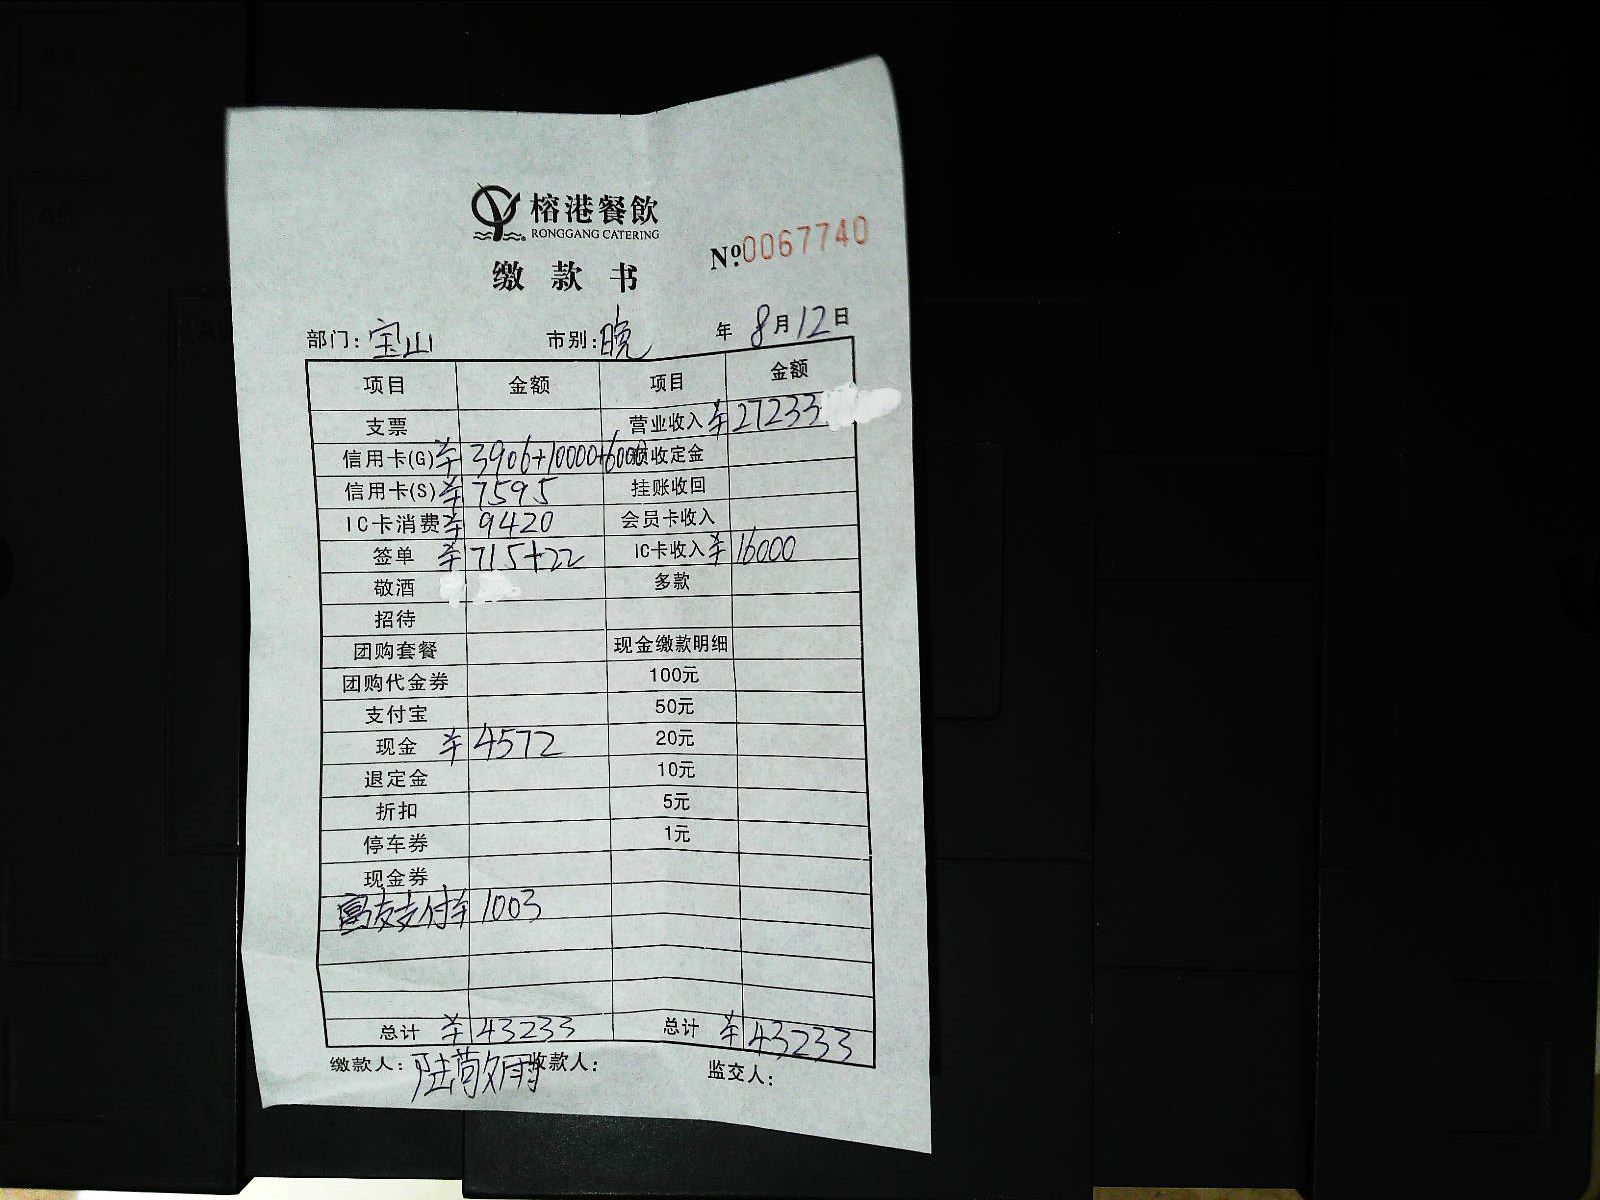 榕港餐飲
RONGGANG CATERING
№0067740
缴款书
部门：宝山 市别：晚 年 8月12日
项目 金额 项目 金额
支票 营业收入 ¥27233
信用卡(G) ¥3906+10000+6000 预收定金
信用卡(S) ¥7595 挂账收回
IC卡消费 ¥9420 会员卡收入
签单 ¥715+22 IC卡收入 ¥16000
敬酒 多款
招待
团购套餐 现金缴款明细
团购代金券 100元
支付宝 50元
现金 ¥4572 20元
退定金 10元
折扣 5元
停车券 1元
现金券
富友支付 ¥1003
总计 ¥43233 总计 ¥43233
缴款人：陆敬雨 收款人： 监交人：